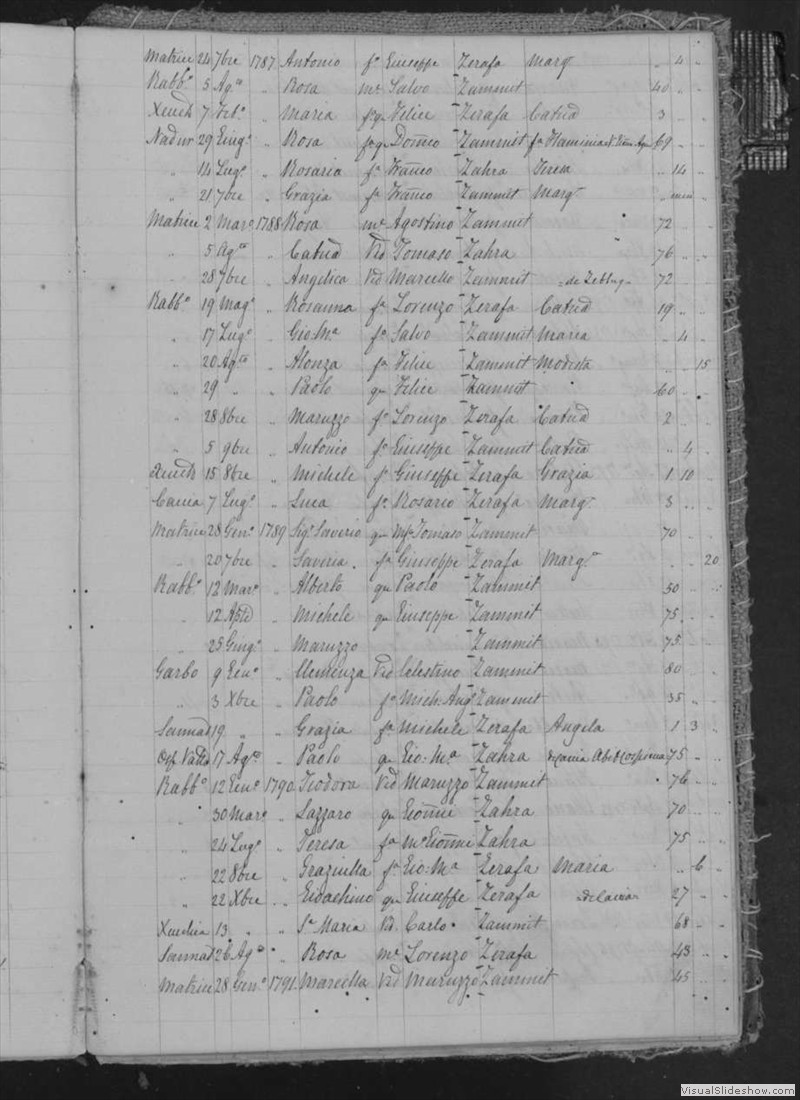 Matrice 24 7bre 1787 Antonio fo Giuseppe Zerafa Marga " 4 "
Rabbo 5 Ago " Rosa me Salvo Zammit 40 " "
Xeuch 7 " Maria Felice Zerafa Catrid 3 " "
Nadur 29 Giugo " Rosa Domco Zammit fa Flaminia 69 " "
" 14 Lugo " Rosaria fa Franco Zahra Teresa " 14 "
" 21 7bre " Grazia fa Franco Zammit Marga "
Matrice 2 Maro 1788 Rosa me Agostino Zammit 72 " "
" 5 Ago " Catrid Vid Tomaso Zahra 76 " "
" 28 7bre " Angelica Vid Marcello Zammit de Zebbug 72 " "
Rabbo 19 Mago " Rosanna fa Lorenzo Zerafa Catrid 19 " "
" 17 Lugo " Gio: Ma fo Salvo Zammit Maria " 4 "
" 20 Ago " Alonza fa Felice Zammit Modesta " " 15
" 29 " " Paolo qm Felice Zammit 60 " "
" 28 8bre " Maruzzo fo Lorenzo Zerafa Catrid 2 " "
" 5 9bre " Antonio fo Giuseppe Zammit Catrid " 4 "
Xeuch 15 8bre " Michele fo Giuseppe Zerafa Grazia 1 10 "
Caccia 7 Lugo " Luca fo Rosario Zerafa Marga 3 " "
Matrice 28 Geno 1789 Sigr Saverio qm Tomaso Zammit 70 " "
" 20 7bre " Saveria fa Giuseppe Zerafa Marga " " 20
Rabbo 12 Maro " Alberto qm Paolo Zammit 50 " "
" 12 " Michele qm Giuseppe Zammit 75 " "
" 25 Giugo " Maruzzo Zammit 75 " "
Garbo 9 Geno " Clemenza Vid Celestino Zammit 80 " "
" 3 Xbre " Paolo fo Mich: Ang Zammit 35 " "
Sannat 19 " " Grazia fa Michele Zerafa Angela 1 3 "
17 Ago " Paolo qm Gio: Ma Zahra 75 " "
Rabbo 12 Geno 1790 Teodora Vid Maruzzo Zammit 76 " "
" 30 Maro " Lazzaro qm Gionni Zahra 70 " "
" 24 Lugo " Teresa fa mo Gionni Zahra 75 " "
" 22 8bre " Graziulla fa Gio: Ma Zerafa Maria " 6 "
" 22 Xbre " Gioachino qm Giuseppe Zerafa 27 " "
13 " " Sr Maria Vd Carlo Zammit 68 " "
Sannat 26 Ago " Rosa me Lorenzo Zerafa 43 " "
Matrice 28 Geno 1791 Marcella Vid Maruzzo Zammit 45 " "
VisualSlideshow.com